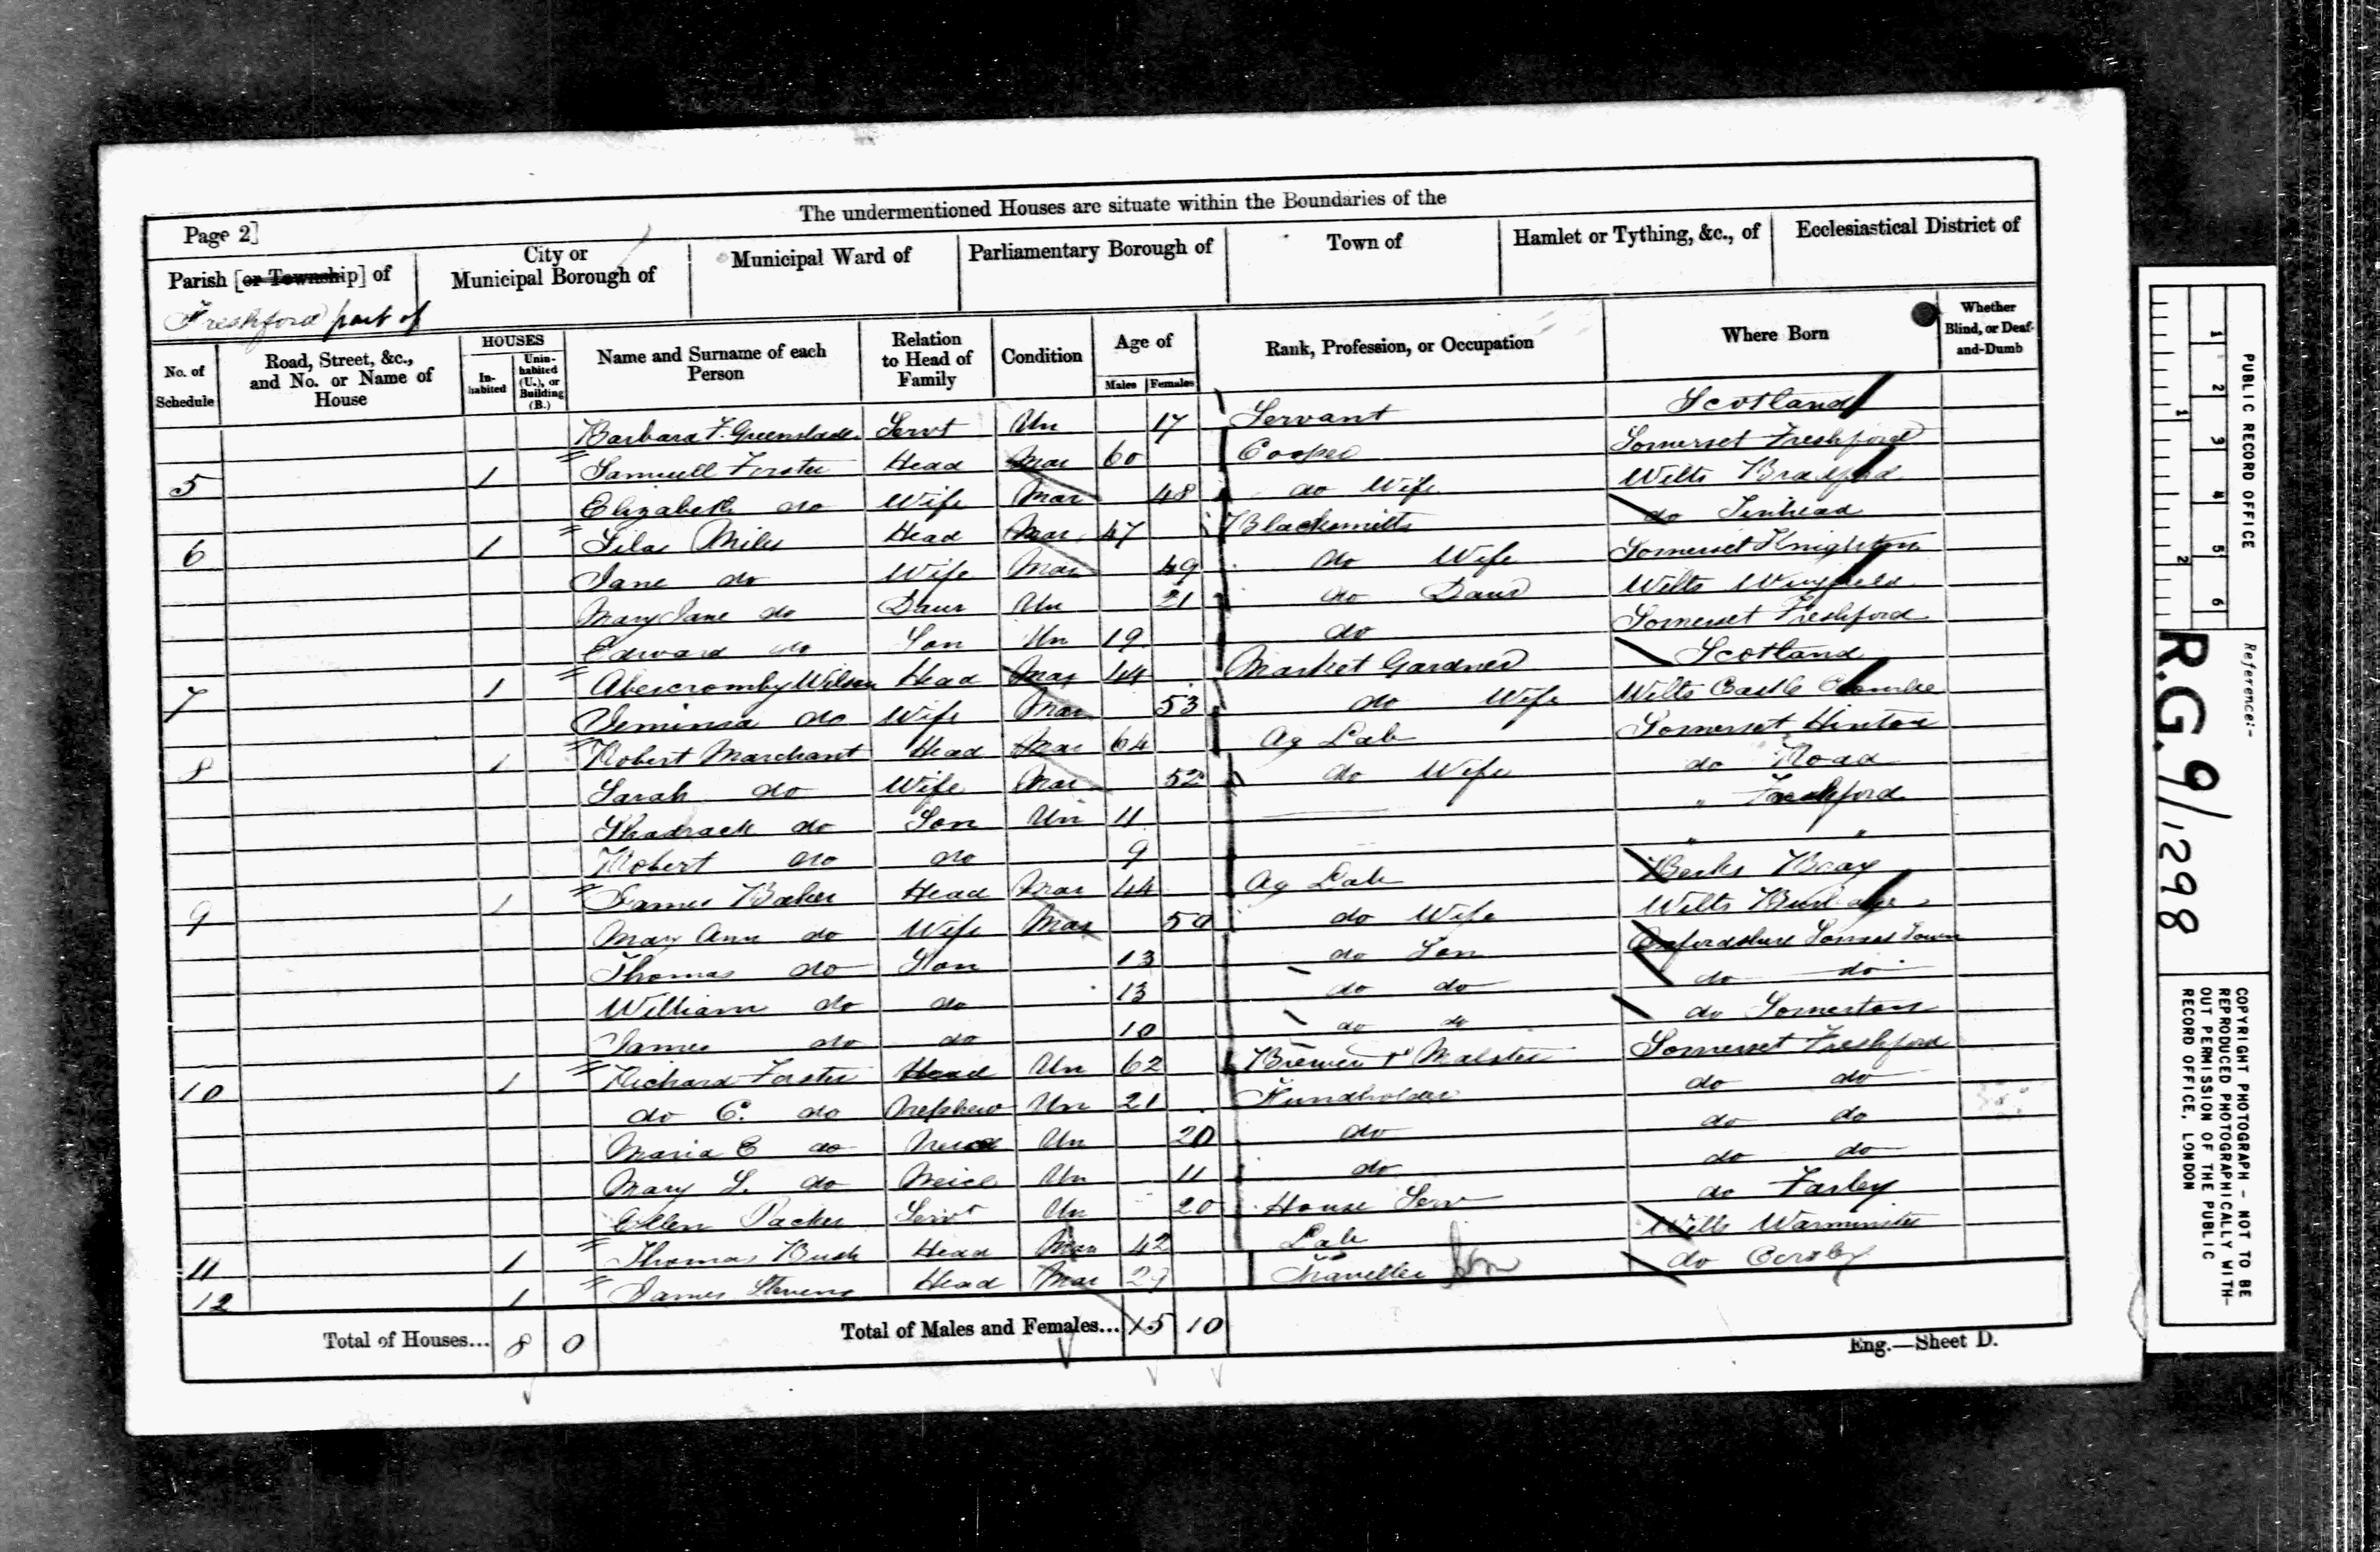 The undermentioned Houses are situate within the Boundaries of the
Page 2]
Parish [or Township] of
City or Municipal Borough of
Municipal Ward of
Parliamentary Borough of
Town of
Hamlet or Tything, &c., of
Ecclesiastical District of
Freshford part of
No. of Schedule
Road, Street, &c., and No. or Name of House
HOUSES
In-habited
Unin-habited (U.), or Building (B.)
Name and Surname of each Person
Relation to Head of Family
Condition
Age of
Males
Females
Rank, Profession, or Occupation
Where Born
Whether Blind, or Deaf-and-Dumb
Barbara F. Greenslade Servt Un 17 Servant Scotland
5 1 Samuell Forster Head Mar 60 Cooper Somerset Freshford
Elizabeth do Wife Mar 48 do Wife Wilts Bradford
6 1 Silas Miles Head Mar 47 Blacksmith do Tinhead
Jane do Wife Mar 49 do Wife Somerset Knighton
Mary Jane do Daur Un 21 do Daur Wilts Wingfield
Edward do Son Un 19 do Somerset Freshford
7 1 Abercromby Wilson Head Mar 44 Market Gardner Scotland
Jemima do Wife Mar 53 do Wife Wilts Castle Coombe
8 1 Robert Marchant Head Mar 64 Ag Lab Somerset Hinton
Sarah do Wife Mar 52 do Wife do Road
Shadrack do Son Un 11 " Freshford
Robert do do 9 " "
9 1 James Baker Head Mar 44 Ag Lab Berks Bray
Mary Ann do Wife Mar do Wife Wilts
Thomas do Son 13 do Son Oxfordshire Town
William do do 13 do do do do
James do do 10 do do do Somerton
10 1 Richard Forster Head Un 62 Brewer & Malster Somerset Freshford
do C. do Nephew Un 21 Fundholder do do
Maria E do Neice Un 20 do do do
Mary L. do Neice Un 11 do do do
Ellen Packer Servt Un 20 House Serv do Farley
11 1 Thomas Bush Head Mar 42 Lab Wilts Warminster
12 1 James Stevens Head Mar 29 do
Total of Houses... 8 0
Total of Males and Females... 15 10
Eng.—Sheet D.
PUBLIC RECORD OFFICE
1 2 3 4 5 6
1 2
Reference:-
R.G. 9/1298
COPYRIGHT PHOTOGRAPH - NOT TO BE
REPRODUCED PHOTOGRAPHICALLY WITH-
OUT PERMISSION OF THE PUBLIC
RECORD OFFICE, LONDON